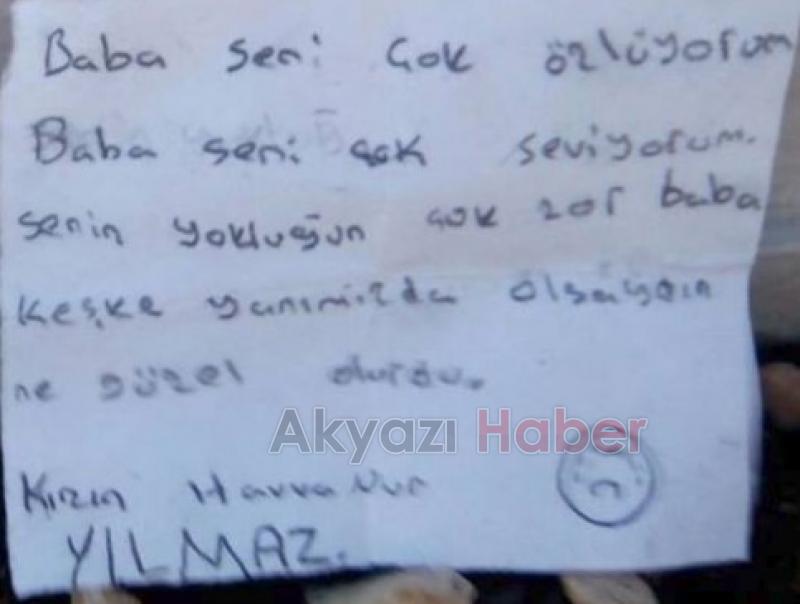 Baba seni çok özlüyorum
Baba seni çok seviyorum.
senin yokluğun çok zor baba
keşke yanımızda olsaydın
ne güzel olurdu.
Akyazı Haber
Kızın Havva Nur
YILMAZ.